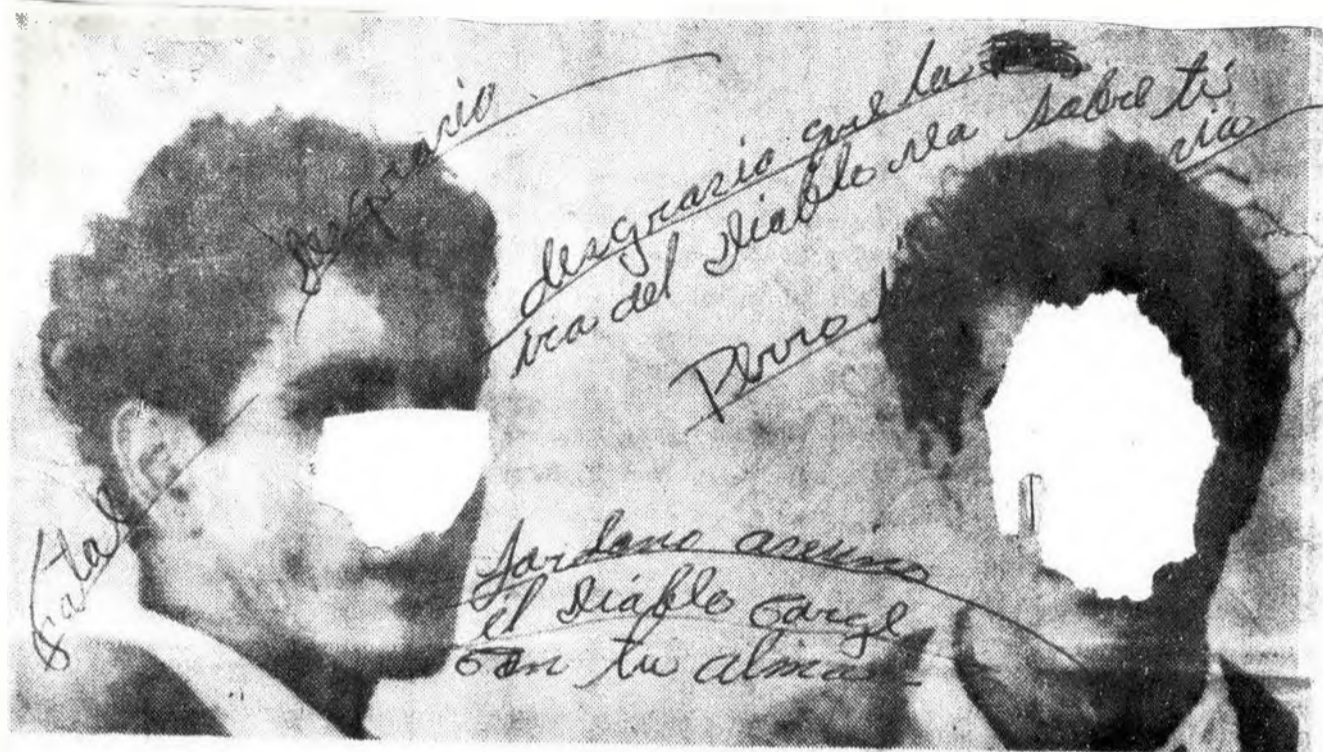 desgrasio
desgrasia que la
ira del Diablo sea sobre ti
Perro
asesino
el Diablo carge
con tu alma